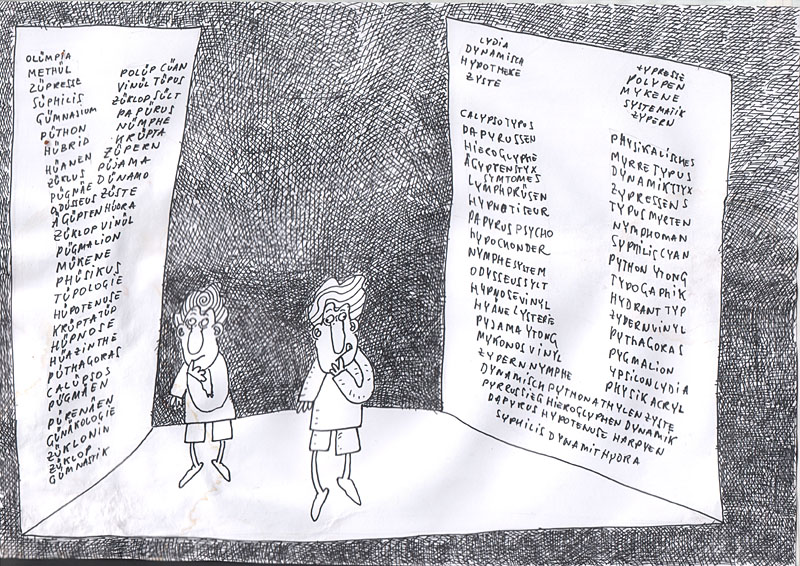 OLÜMPIA
METHÜL
ZÜPRESSE
SÜPHILIS
GÜMNASIUM
PÜTHON
HÜBRID
HÜANEN
ZÜKLUS
PÜGMÄE
ODÜSSEUS ZÜSTE
ÄGÜPTEN HÜDRA
ZÜKLOP VINÜL
PÜGMALION
MÜKENE
PHÜSIKUS
TÜPOLOGIE
HÜPOTENUSE
KRÜPTATÜP
HÜPNOSE
HÜAZINTHE
PÜTHAGORAS
CALÜPSOS
PÜGMÄEN
PÜRENÄEN
GÜNÄKOLOGIE
ZÜKLONIN
ZÜKLOP
GÜMNASTIK
POLÜP CÜAN
VINÜL TÜPUS
ZÜKLOP SÜLT
PAPÜRUS
NÜMPHE
KRÜPTA
ZÜPERN
PÜJAMA
DÜNAMO
LYDIA
DYNAMISCH
HYPOTHEKE
ZYSTE
CALYPSO TYPOS
PAPYRUSSEN
HIEROGLYPHE
ÄGYPTEN STYX
SYMTOMES
LYMPHDRÜSEN
HYPNOTISEUR
PAPYRUS PSYCHO
HYPOCHONDER
NYMPHESYSTEM
ODYSSEUS SYLT
HYPNOSE VINYL
HYÄNE LYSTERIE
PYJAMA YTONG
MYKONOS VINYL
ZYPERN NYMPHE
DYNAMISCH PYTHON ÄTHYLEN ZYSTE
PYREUSSIES HIEROGLYPHEN DYNAMIK
PAPYRUS HYPOTENUSE HARPYEN
SYPHILIS DYNAMIT HYDRA
ZYPRESSE
POLYPEN
MYKENE
SYSTEMATIK
ZYPERN
PHYSIKALISCHES
MYRRE TYPUS
DYNAMIK STYX
ZYPRESSENS
TYPUS MYRTEN
NYMPHOMAN
SYPHILIS CYAN
PYTHON YTONG
TYPOGAPHIK
HYDRANT TYP
ZYPERN VINYL
PYTHAGORAS
PYGMALION
YPSILON LYDIA
PHYSIK ACRYL